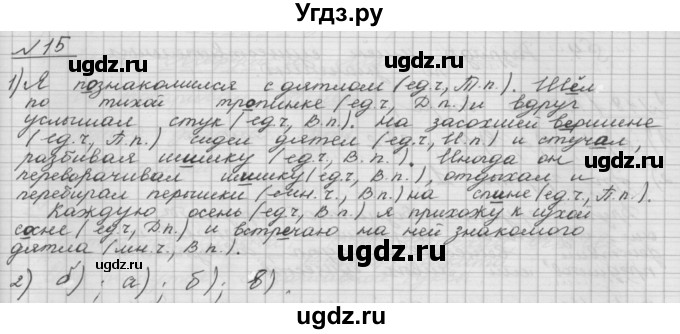 Угдз.ру
N 15
ugdz.ru ugdz.ru
1) Я познакомился с дятлом (ед.ч, Т.п.). Шёл
по тихой тропинке (ед.ч, Д.п.) и вдруг
услышал стук (ед.ч, В.п.). На засохшей вершине
(ед.ч, П.п.) сидел дятел (ед.ч, И.п.) и стучал,
разбивая шишку (ед.ч, В.п.). Иногда он
переворачивал шишку (ед.ч, В.п.), отдыхал и
перебирал перышки (мн.ч., В.п.) на спине (ед.ч, П.п.).
Каждую осень (ед.ч, В.п.) я прихожу к сухой
сосне (ед.ч, Д.п.) и встречаю на ней знакомого
дятла (мн.ч., В.п.).
ugdz.ru ugdz.ru
2) б) ; а) ; б) ; в).
Угдз.ру